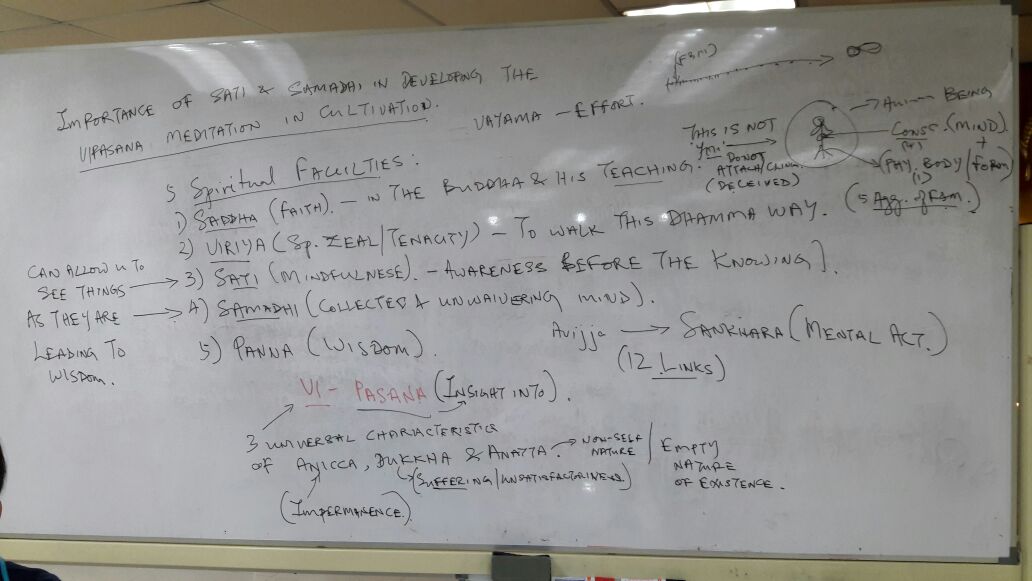 IMPORTANCE OF SATI & SAMADHI IN DEVELOPING THE
VIPASANA MEDITATION IN CULTIVATION.
VAYAMA – EFFORT.
5 Spiritual FACULTIES:
1) SADDHA (FAITH). – IN THE BUDDHA & HIS TEACHING.
2) VIRIYA (Sp. ZEAL/TENACITY) – TO WALK THIS DHAMMA WAY.
3) SATI (MINDFULNESE). – AWARENESS BEFORE THE KNOWING].
4) SAMADHI (COLLECTED & UNWAIVERING MIND).
5) PANNA (WISDOM).
CAN ALLOW U TO
SEE THINGS
AS THEY ARE
LEADING TO
WISDOM.
THIS IS NOT
DO NOT
ATTACH/CLING
(DECEIVED)
BEING
CONSC. (MIND)
+
PHY. BODY/form)
(1)
(5 Agg. of F&M.)
Avijja → SANKHARA (MENTAL ACT.)
(12 LINKS)
VI – PASANA (INSIGHT INTO).
3 UNIVERSAL CHARACTERISTICS
OF ANICCA, DUKKHA & ANATTA. → NON-SELF NATURE / EMPTY
NATURE
OF EXISTENCE.
(SUFFERING/UNSATISFACTORINESS)
(IMPERMANENCE).